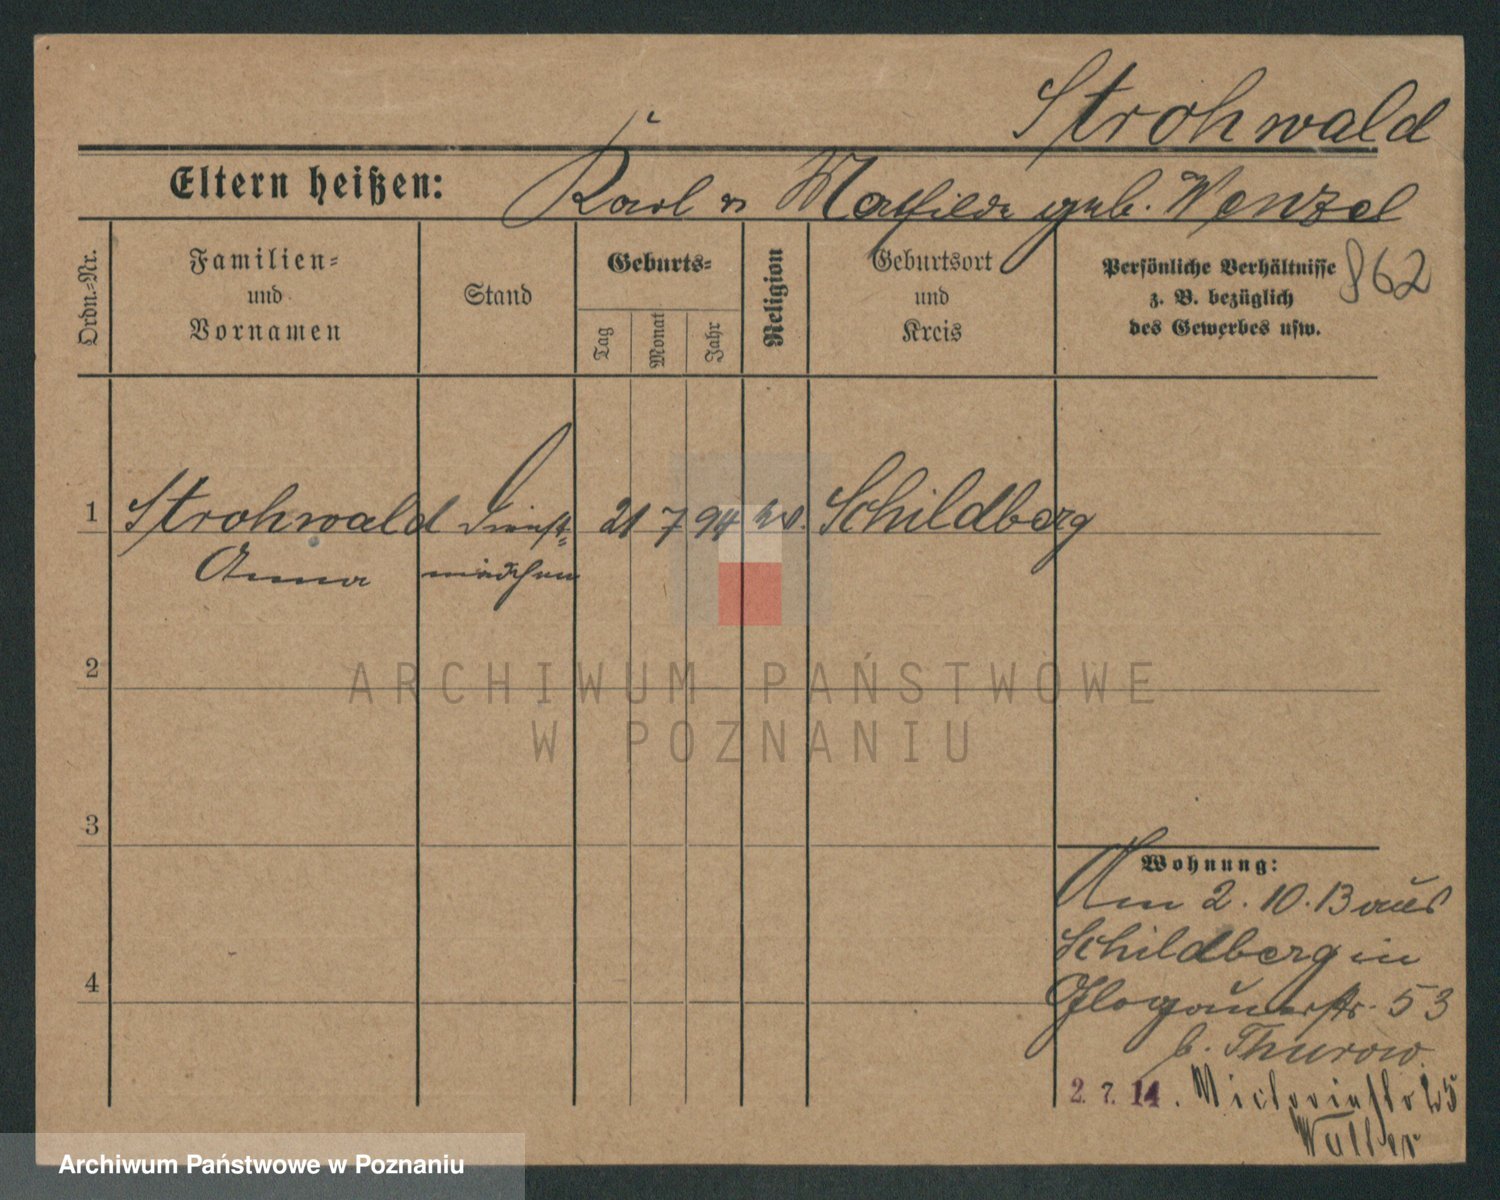 Strohwald
Eltern heißen: Karl u Mathilde geb. Wenzel
Ordn.-Nr.
Familien-
und
Vornamen
Stand
Geburts-
Tag
Monat
Jahr
Religion
Geburtsort
und
Kreis
Persönliche Verhältnisse
z. B. bezüglich
des Gewerbes usw.
862
1 Strohwald Dienst- 21 7 94 Schildberg
Anna mädchen
2
3
4
Wohnung:
Am 2.10.13 aus
Schildberg in
Glogauerstr. 53
b. Thurow.
2. 7. 14.
Walter
ARCHIWUM PAŃSTWOWE
W POZNANIU
Archiwum Państwowe w Poznaniu